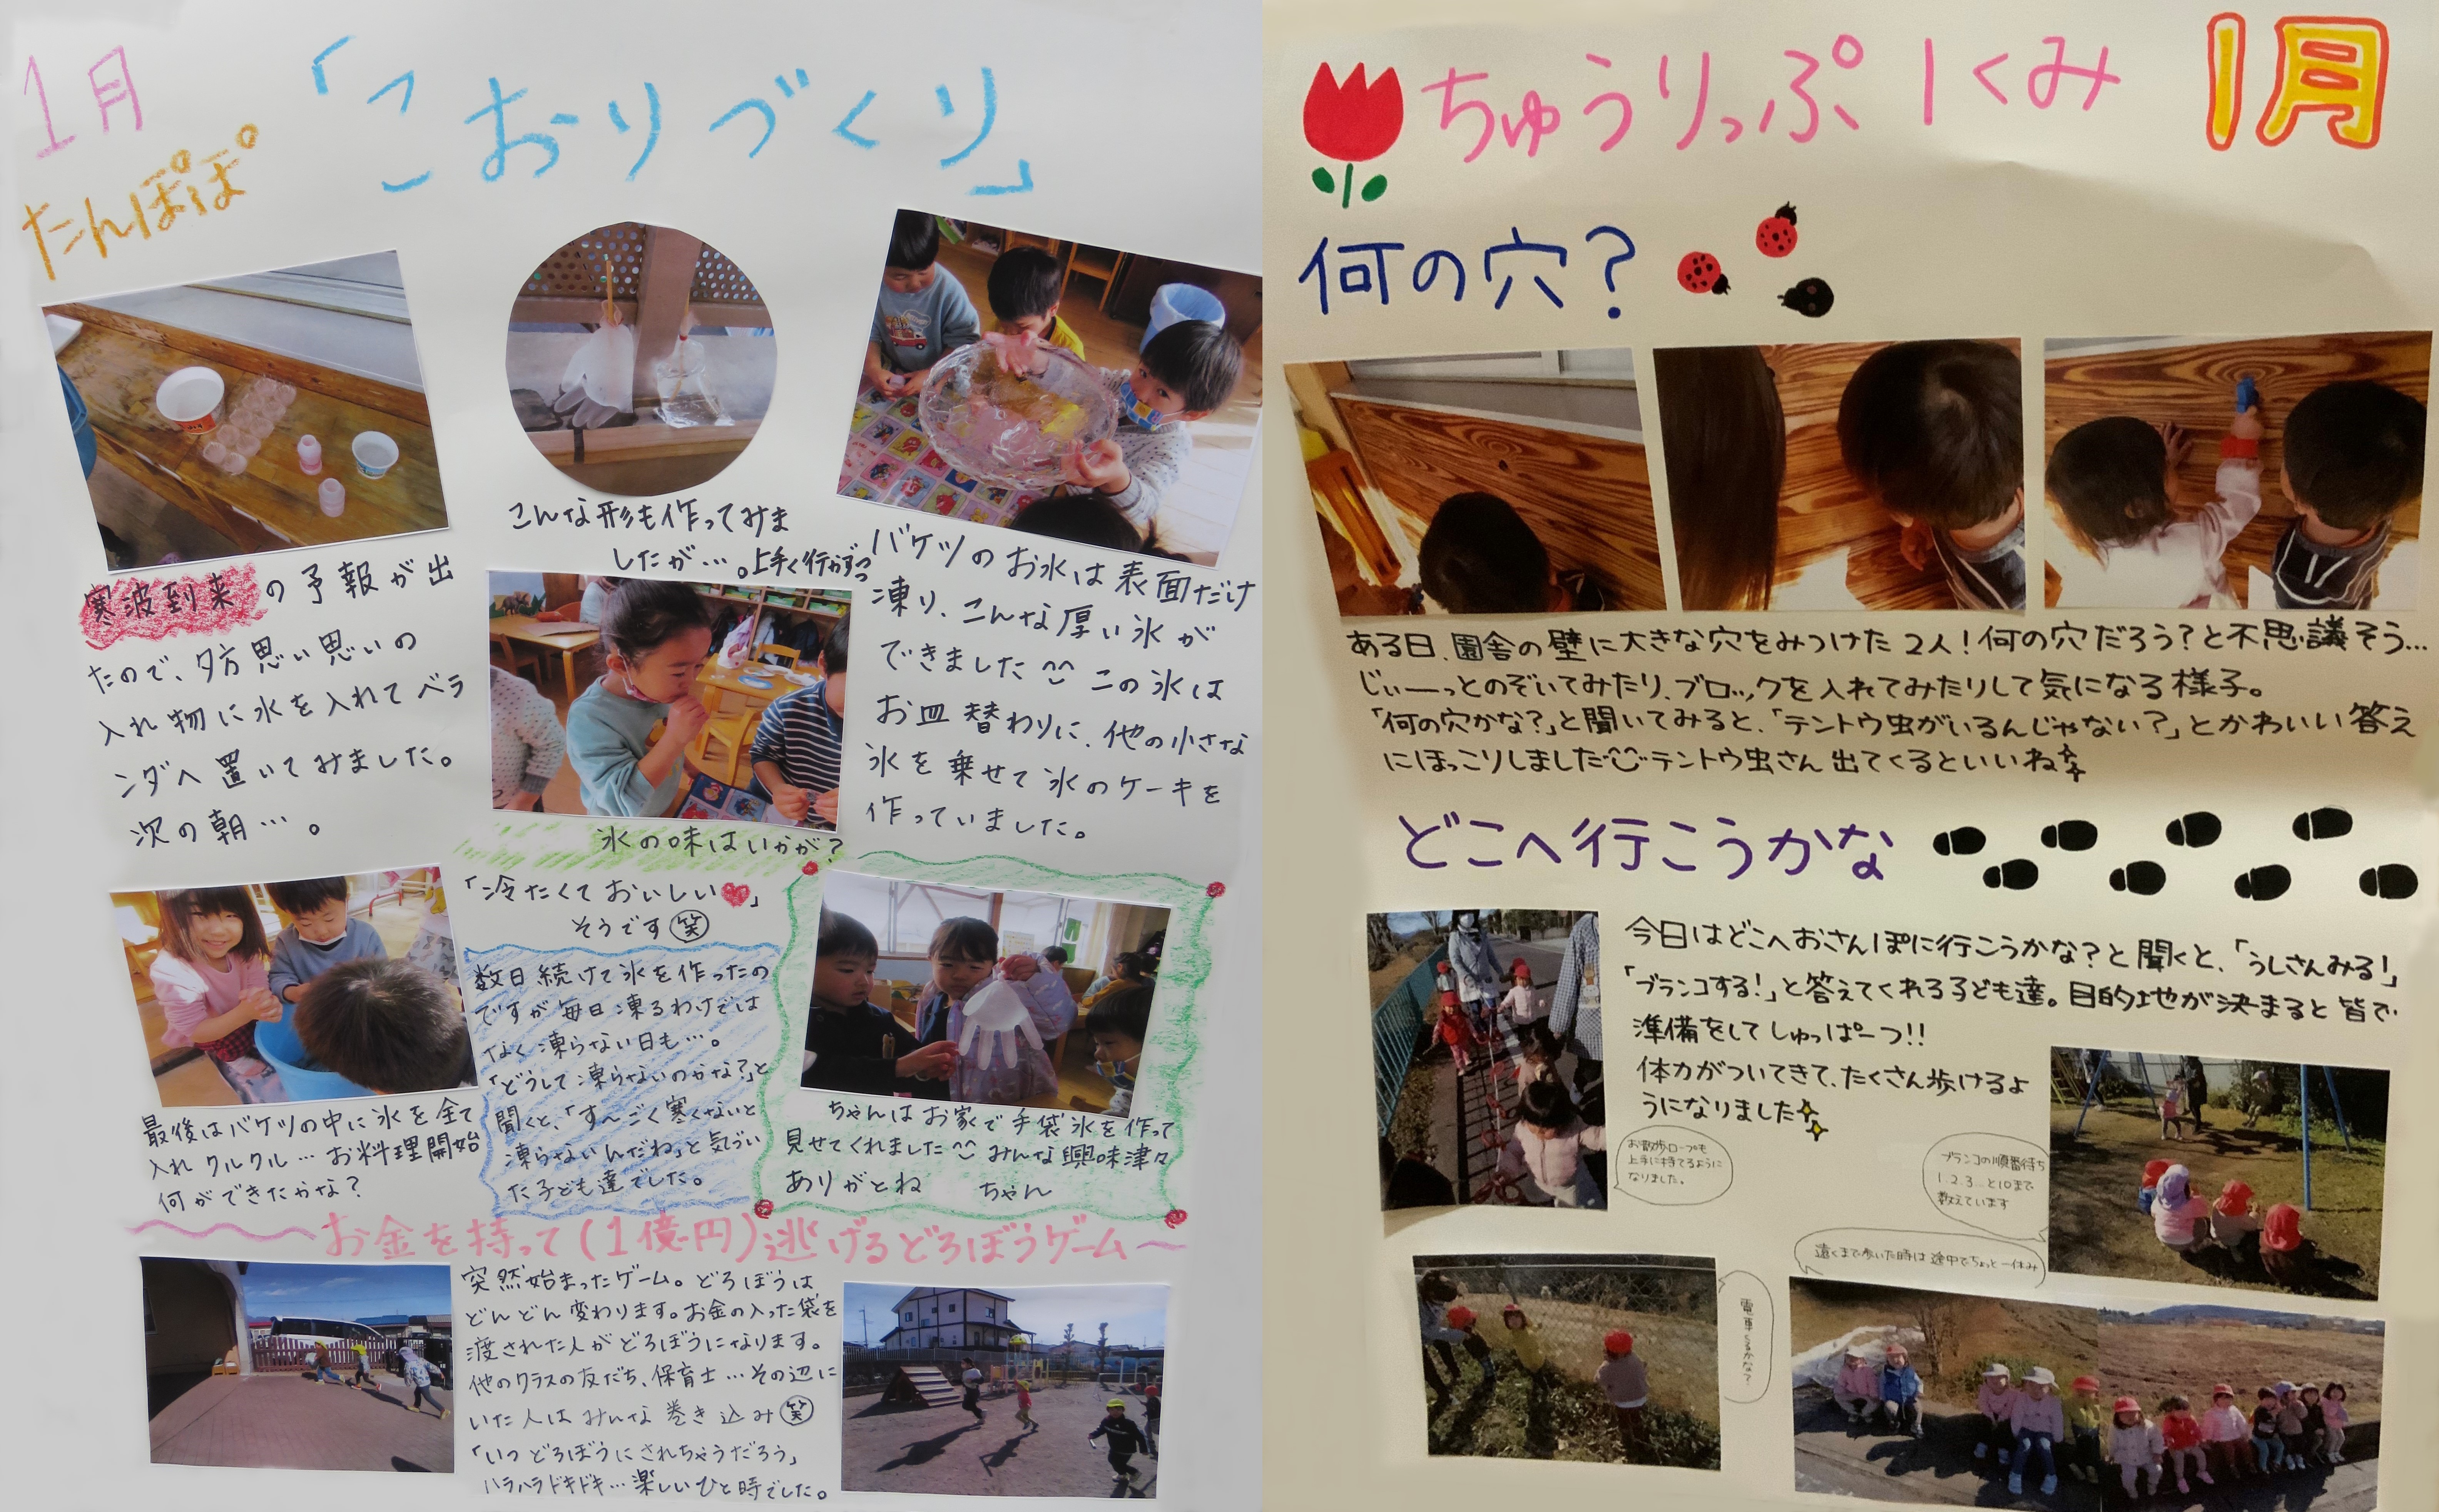 1月
たんぽぽ
「こおりづくり」
寒波到来の予報が出
たので、夕方思い思いの
入れ物に水を入れてベラ
ンダへ置いてみました。
次の朝…。
こんな形も作ってみま
したが…。上手く行かずっっ
バケツのお水は表面だけ
凍り、こんな厚い氷が
できました^^ この氷は
お皿替わりに、他の小さな
氷を乗せて氷のケーキを
作っていました。
氷の味はいかが?
「冷たくておいしい♥」
そうです(笑)
最後はバケツの中に氷を全て
入れクルクル…お料理開始
何ができたかな?
数日続けて氷を作ったの
ですが毎日凍るわけでは
なく凍らない日も…。
「どうして凍らないのかな?」と
聞くと、「す〜ごく寒くないと
凍らないんだね」と気づい
た子ども達でした。
ちゃんはお家で手袋氷を作って
見せてくれました^^ みんな興味津々
ありがとね ちゃん
〜お金を持って(1億円)逃げるどろぼうゲーム〜
突然始まったゲーム。どろぼうは
どんどん変わります。お金の入った袋を
渡された人がどろぼうになります。
他のクラスの友だち、保育士…その辺に
いた人はみんな巻き込み(笑)
「いつどろぼうにされちゃうだろう」
ハラハラドキドキ…楽しいひと時でした。
ちゅうりっぷ1くみ 1月
何の穴?
ある日、園舎の壁に大きな穴をみつけた2人!何の穴だろう?と不思議そう…
じぃーっとのぞいてみたり、ブロックを入れてみたりして気になる様子。
「何の穴かな?」と聞いてみると、「テントウ虫がいるんじゃない?」とかわいい答え
にほっこりしました テントウ虫さん出てくるといいね
どこへ行こうかな
今日はどこへおさんぽに行こうかな?と聞くと、「うしさんみる!」
「ブランコする!」と答えてくれる子ども達。目的地が決まると皆で
準備をしてしゅっぱーつ!!
体力がついてきて、たくさん歩けるよ
うになりました
お散歩ロープも
上手に持てるように
なりました。
ブランコの順番待ち
1.2.3…と10まで
数えています
遠くまで歩いた時は途中でちょっと一休み